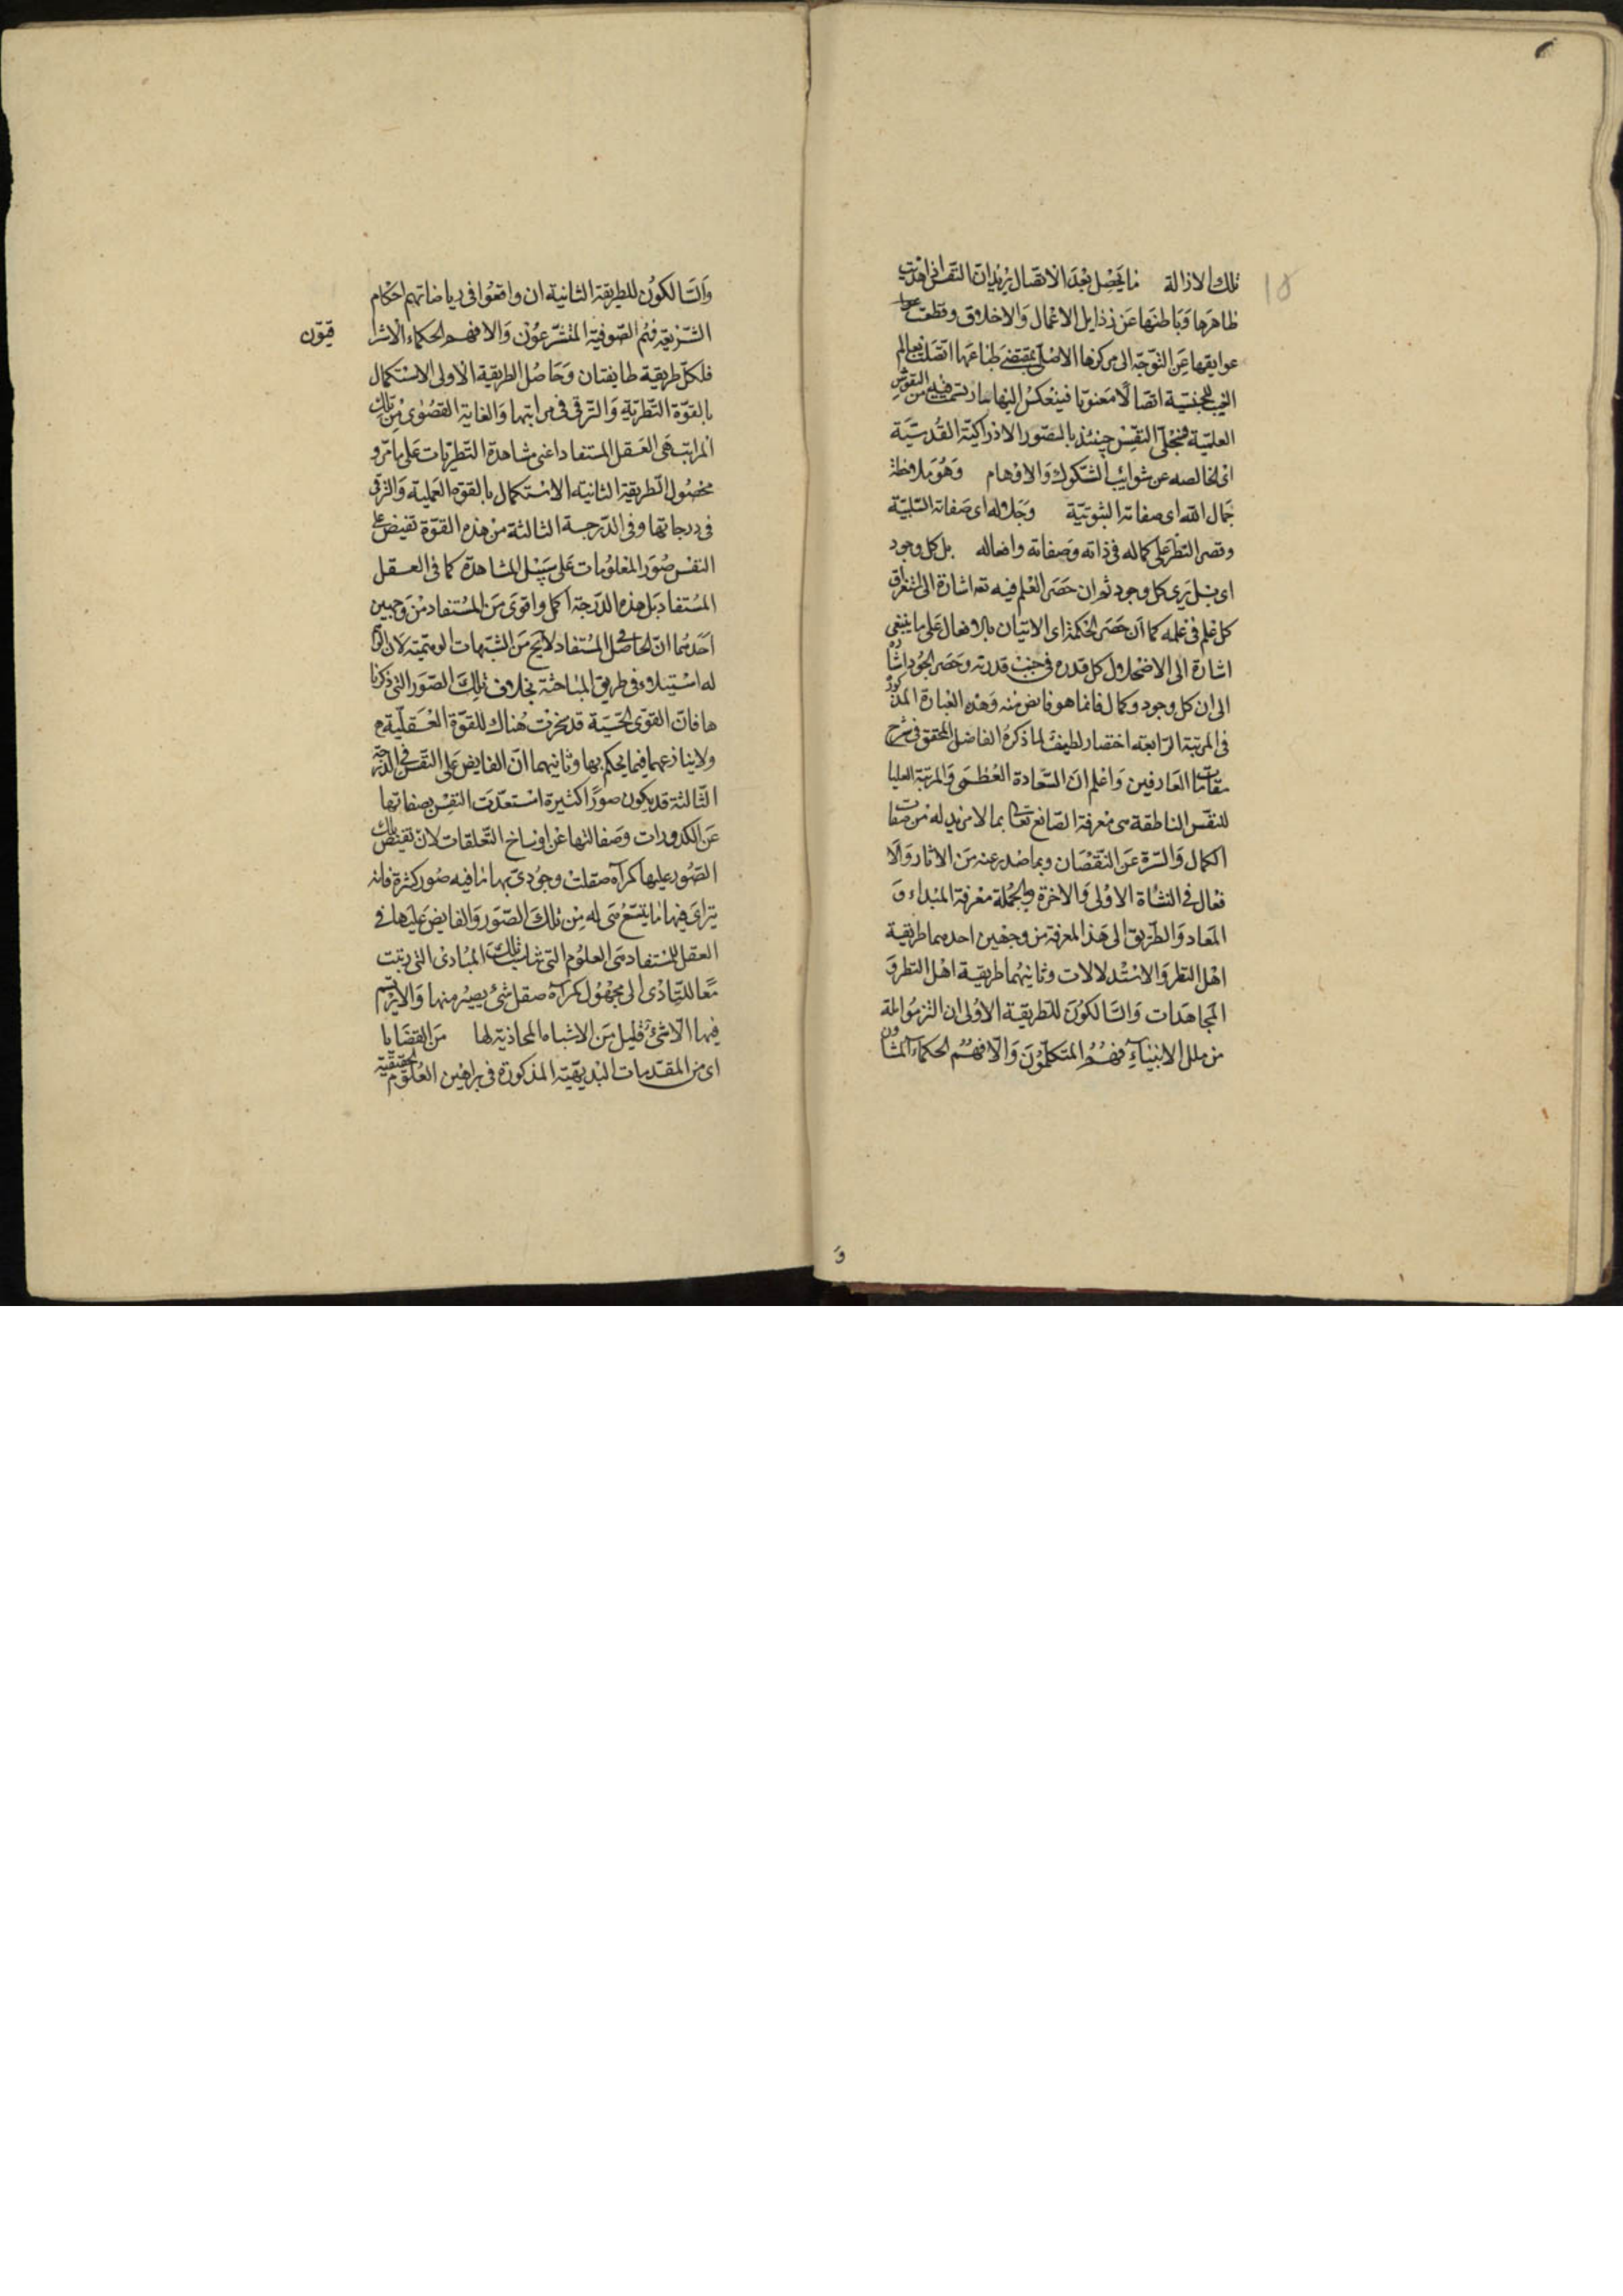 تلك الازالة ما يحصل بعد الاتصال يريد ان النفس اذا هذبت
ظاهرها وباطنها عن رذايل الاعمال والاخلاق وقطعت
عوايقها عن التوجه الى مركزها الاصلى بمقتضى طباعها اتصلت بعالم
الغيب للجنسية اتصالا معنويا فينعكس اليها بما ارتسمت فيه من النقوش
العلمية فتجلى النفس حينئذ بالصور الادراكية القدسية
اى الخالصه عن شوايب الشكوك والاوهام وهو ملاحظة
جمال الله اى صفاته الثبوتية وجلاله اى صفاته السلبية
وقصر النظر على كماله فى ذاته وصفاته وافعاله بل كل وجود
اى بل يرى كل وجود ثم ان حصر العلم فيه تع اشارة الى استغراق
كل علم فى علمه كما ان حصر الحكمة اى الاتيان بالافعال على ما ينبغى
اشارة الى الاضمحلال كل قدره فى جنب قدرته وحصر الجود اشارة
الى ان كل وجود وكمال فانما هو فايض منه وهذه العبارة المذكورة
فى المرتبة الرابعة اختصار لطيف لما ذكره الفاضل المحقق فى شرح
مقامات العارفين واعلم ان السعادة العظمى والمرتبة العليا
للنفس الناطقة هى معرفة الصانع تعالى بما لا مزيد له من صفات
الكمال والتنزه عن النقصان وبما صدر عنه من الاثار والا
فعال فى النشاة الاولى والاخرة وبالجملة معرفة المبداء و
المعاد والطريق الى هذا المعرفة من وجهين احدهما طريقية
اهل النظر والاستدلالات وثانيهما طريقية اهل النظر و
المجاهدات والسالكون للطريقية الاولى ان التزموا ملة
من ملل الانبياء فهم المتكلمون والا فهم الحكماء المشاون
و
والسالكون للطريقة الثانية ان وافقوا فى رياضاتهم احكام
الشريعة فهم الصوفية المتشرعون والا فهم الحكماء الاشرا قيون
فلكل طريقية طايفتان وحاصل الطريقية الاولى الاستكمال
بالقوة النظرية والترقى فى مراتبها والغاية القصوى من تلك
المراتب هى العقل المستفاد اعنى مشاهدة النظريات على ما مر و
محصول الطريقة الثانية الاستكمال بالقوه العملية والترقى
فى درجاتها وفى الدرجة الثالثة من هذه القوة تفيض على
النفس صور المعلومات على سبيل المشاهدة كما فى العقل
المستفاد بل هذه الدرجة اكمل واقوى من المستفاد من وجهين
احدهما ان الحاصل فى المستفاد لا يخ من الشبهات الوهمية لان الوهم
له استيلاء فى طريق المباحثة بخلاف تلك الصور التى ذكرنا
ها فان القوى الحسية قد سخرت هناك للقوة العقلية
ولا ينازعهما فيما يحكم بها وثانيهما ان الفايض على النفس فى الدرجة
الثالثة قد يكون صورا كثيرة استعدت النفس بصفاتها
عن الكدورات وصقالتها عن اوساخ التعلقات لان تفيض تلك
الصور عليها كمرآه صقلت وحوذى بها ما فيه صور كثرة فانه
يتراى فيها ما يتسع هى له من تلك الصور والفايض عليها فى
العقل المستفاد هى العلوم التى تناسب تلك المبادى التى رتبت
معا للتادى الى مجهول كمرآه صقل شئ يصير منها والا يرتسم
فيها الا شئ قليل من الاشباه المحاذية لها من القضايا
اى من المقدمات البديهية المذكورة فى براهين العلوم الحقيقية